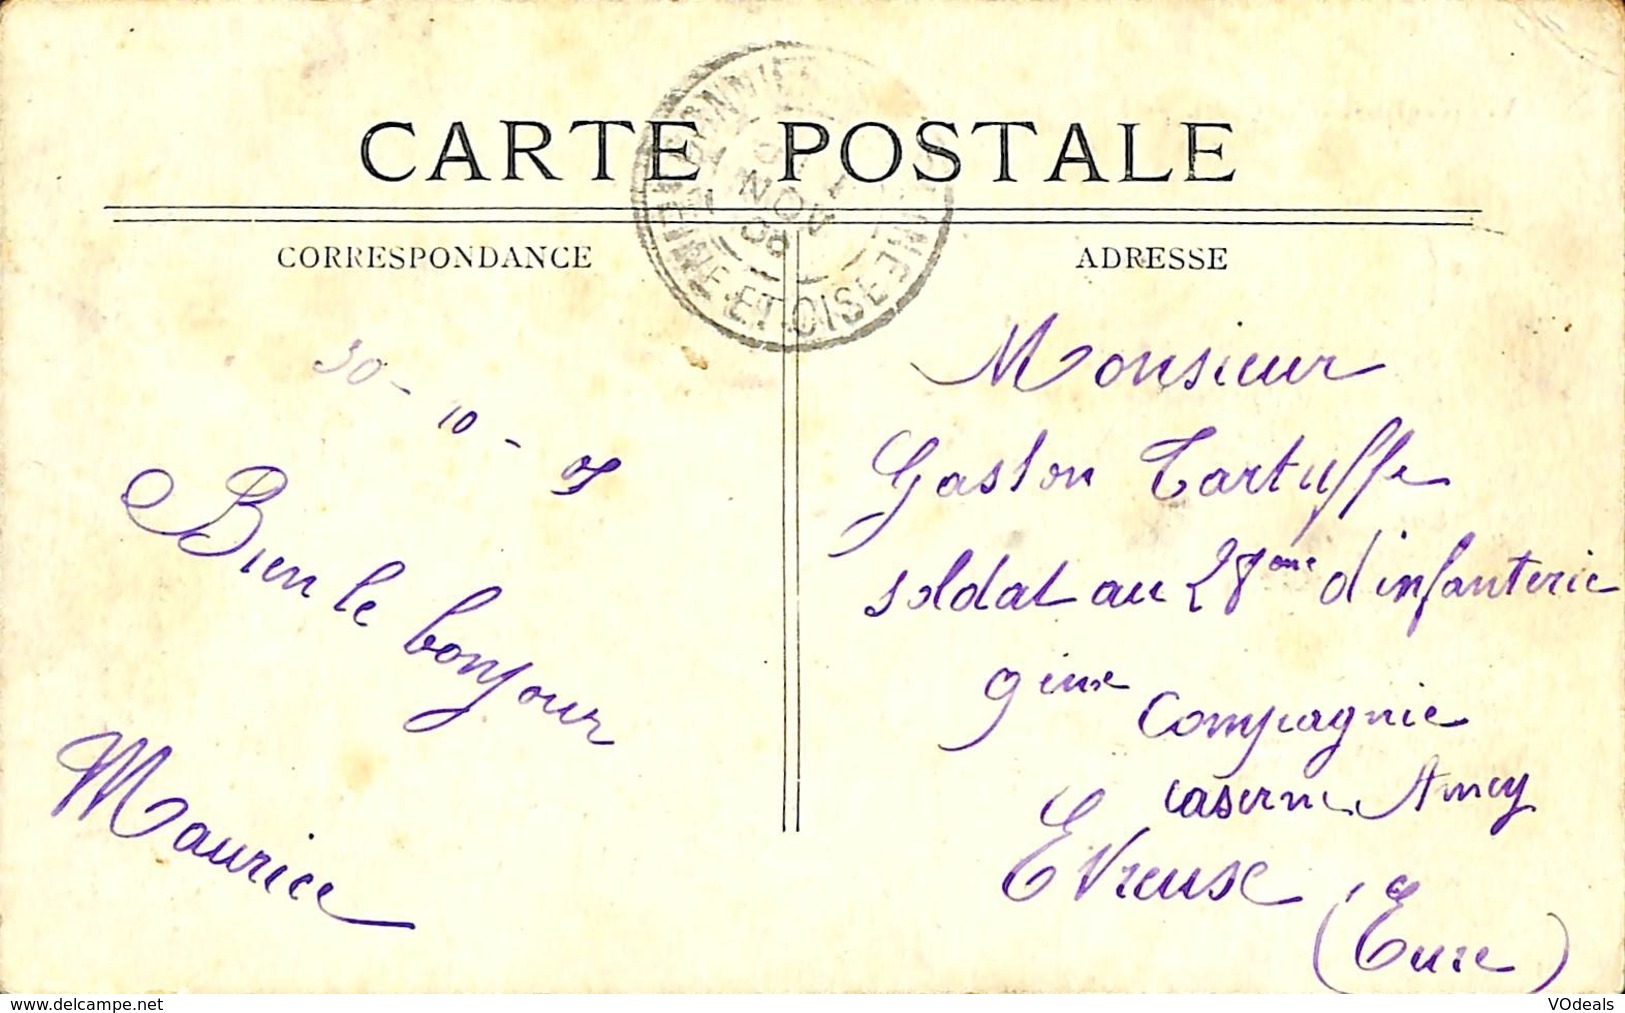 CARTE POSTALE
CORRESPONDANCE
ADRESSE
NOV
SEINE-ET-OISE
30-10-05
Bien le bonjour
Maurice
Monsieur
Gaston Tartuffe
soldat au 28eme d'infanterie
9eme Compagnie
caserne Amey
Evreuse
(Eure)
www.delcampe.net
VOdeals